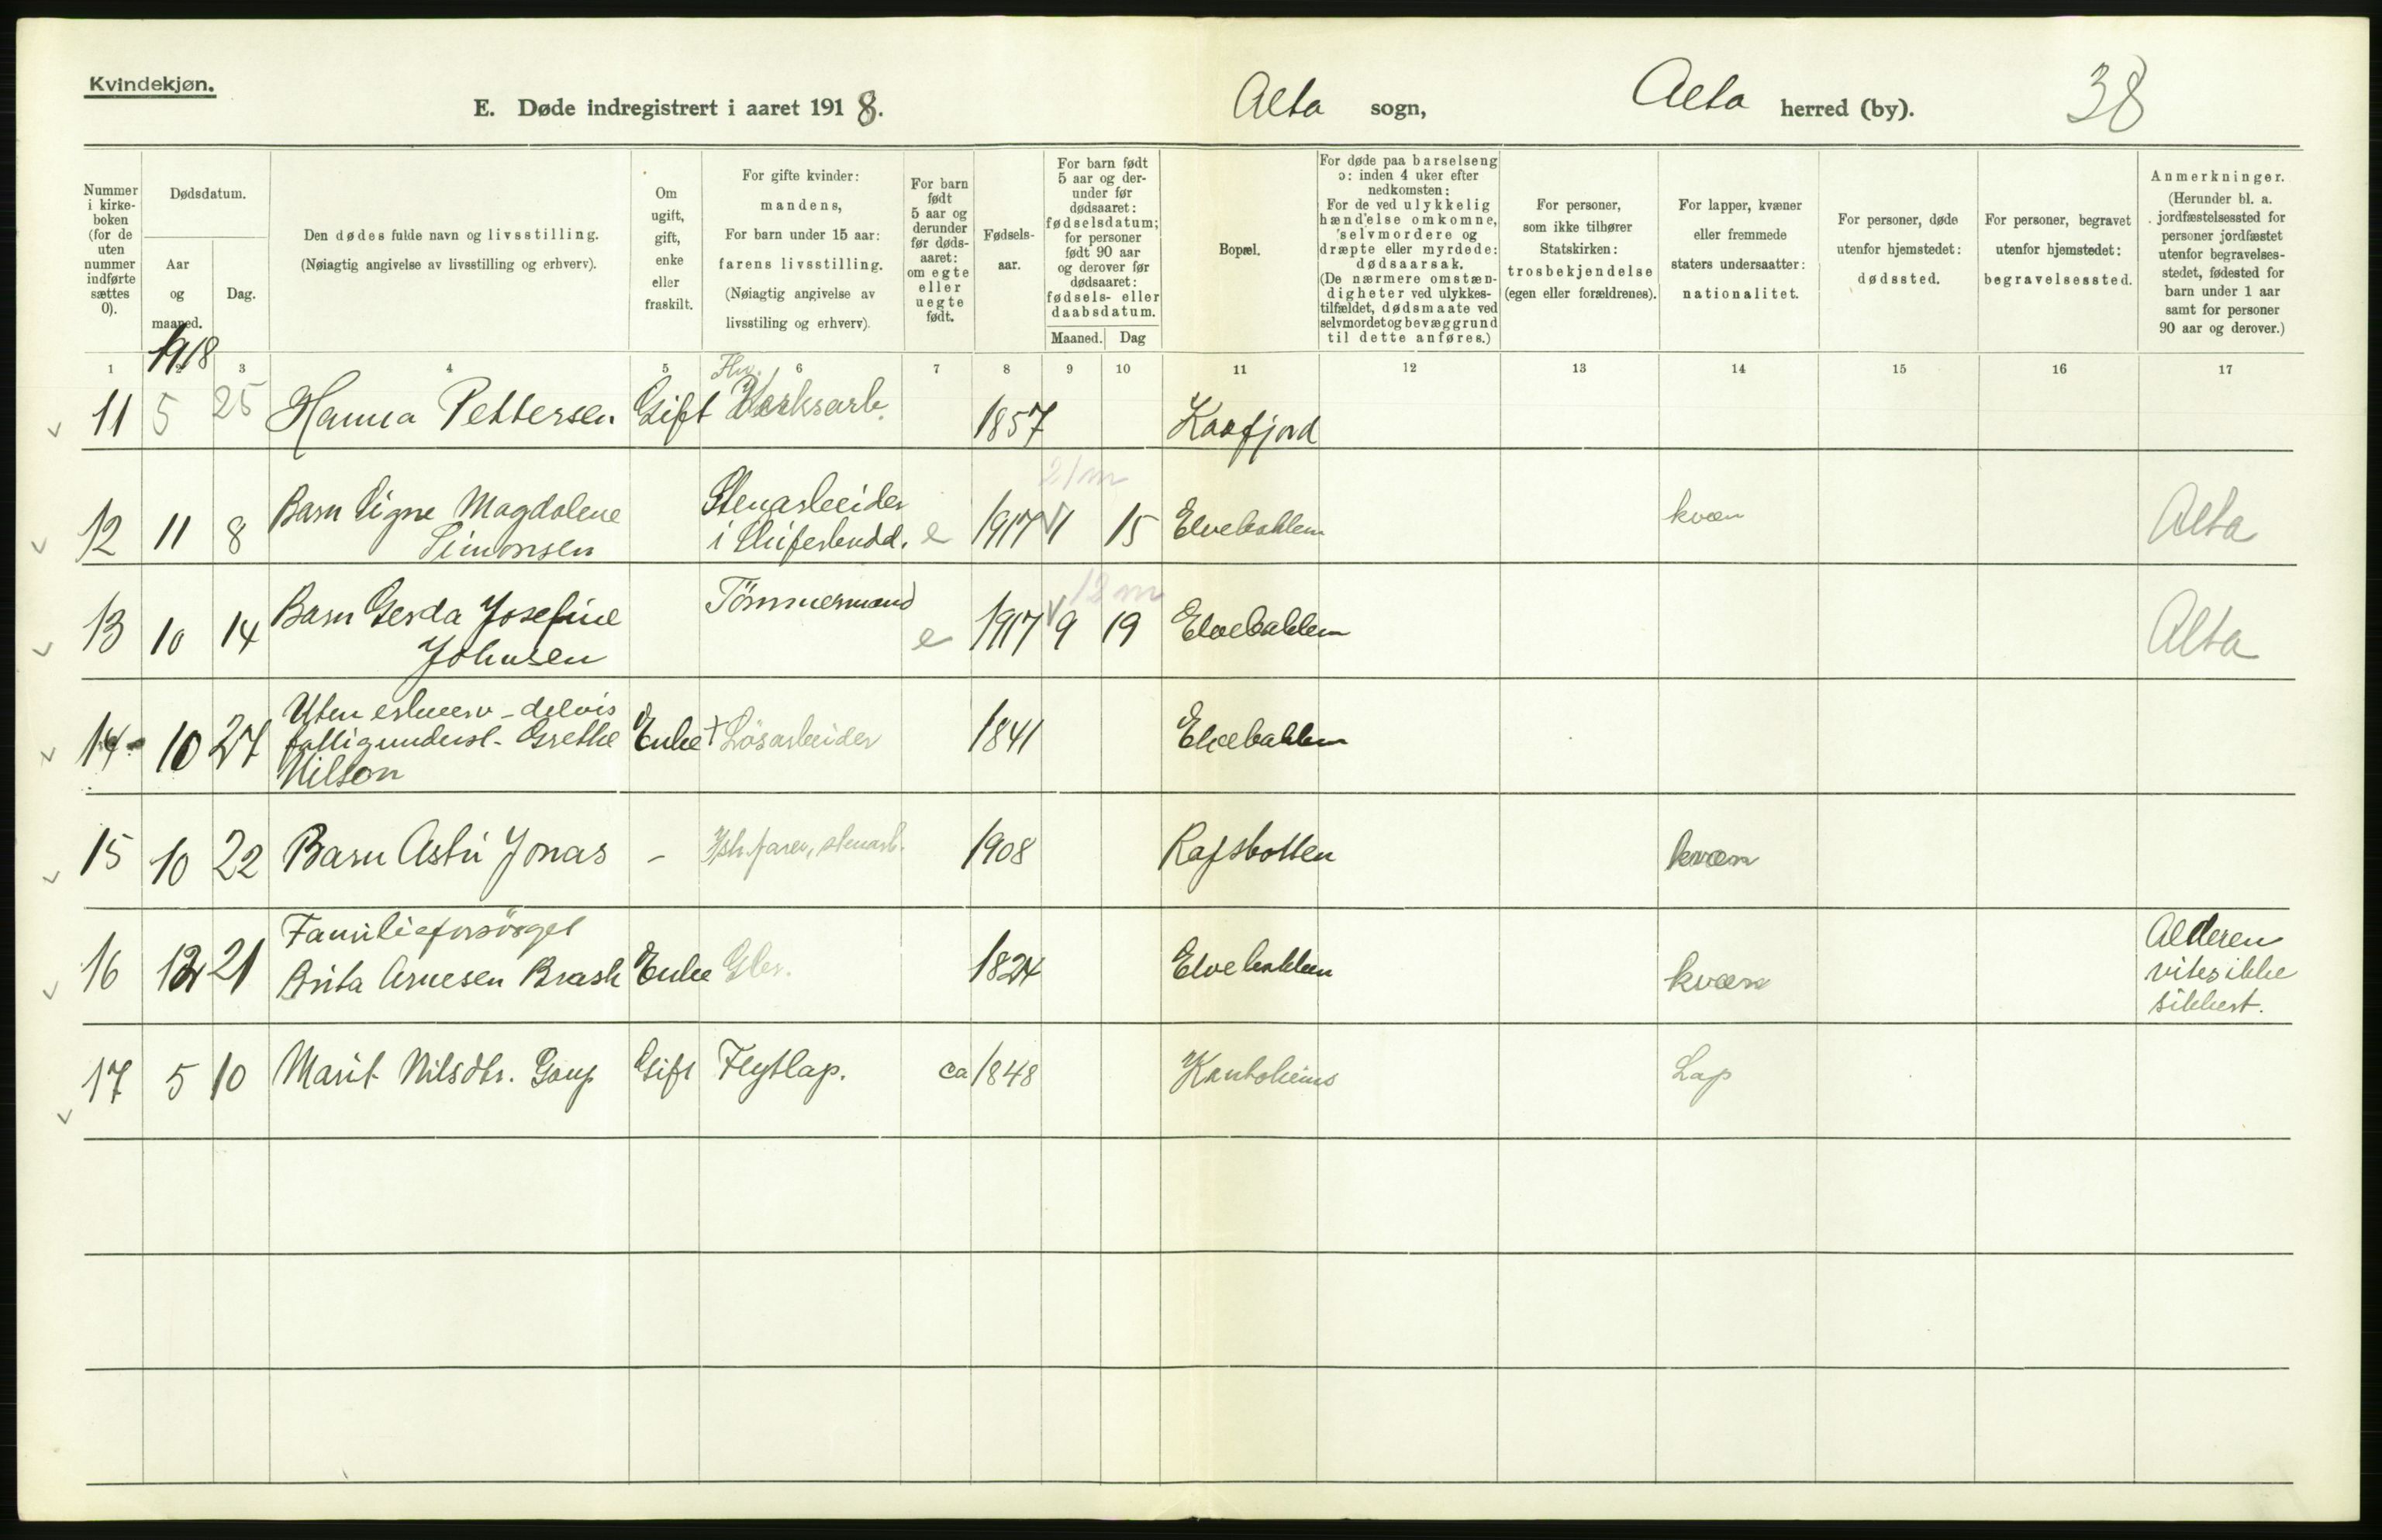 Kvindekjøn.
E. Døde indregistrert i aaret 1918.
Alta sogn,
Alta herred (by).
38
Nummer i kirke-boken (for de uten nummer indførte sættes 0).
Dødsdatum.
Aar og maaned.
Dag.
Den dødes fulde navn og livsstilling.
(Nøiagtig angivelse av livsstilling og erhverv).
Om ugift, gift, enke eller fraskilt.
For gifte kvinder: mandens,
For barn under 15 aar: farens livsstilling.
(Nøiagtig angivelse av livsstiling og erhverv).
For barn født 5 aar og derunder før døds-aaret: om egte eller uegte født.
Fødsels-aar.
For barn født 5 aar og der-under før dødsaaret: fødselsdatum; for personer født 90 aar og derover før dødsaaret: fødsels- eller daabsdatum.
Maaned. Dag
Bopæl.
For døde paa barselseng ɔ: inden 4 uker efter nedkomsten:
For de ved ulykkelig hændelse omkomne, selvmordere og dræpte eller myrdede: dødsaarsak.
(De nærmere omstæn-digheter ved ulykkes-tilfældet, dødsmaate ved selvmordet og bevæggrund til dette anføres.)
For personer, som ikke tilhører Statskirken: trosbekjendelse (egen eller forældrenes).
For lapper, kvæner eller fremmede staters undersaatter: nationalitet.
For personer, døde utenfor hjemstedet: dødssted.
For personer, begravet utenfor hjemstedet: begravelsessted.
Anmerkninger.
(Herunder bl. a. jordfæstelsessted for personer jordfæstet utenfor begravelses-stedet, fødested for barn under 1 aar samt for personer 90 aar og derover.)
1918
1 2 3 4 5 6 7 8 9 10 11 12 13 14 15 16 17
11 5 25 Hanna Pettersen Gift Verksarb. 1857 Kaafjord
21 m
12 11 8 Barn Signe Magdalene Simonsen Stenarbeider i Skiferbrudd. e 1917 1 15 Elvebakken kvæn Alta
12 m
13 10 14 Barn Gerda Josefine Johnsen Tömmermand e 1917 9 19 Elvebakken Alta
14 10 27 Uten erhverv - delvis fattigunderst. Grethe Nilson Enke † Lösarbeider 1841 Elvebakken
15 10 22 Barn Astri Jonas - stenarb. 1908 Rafsbotten kvæn
16 12 21 Familieforsörget Brita Arnesen Brask Enke Gbr. 1824 Elvebakken kvæn Alderen vites ikke sikkert.
17 5 10 Marit Nilsdtr. Gaup Gift Flytlap. ca 1848 Kautokeino Lap